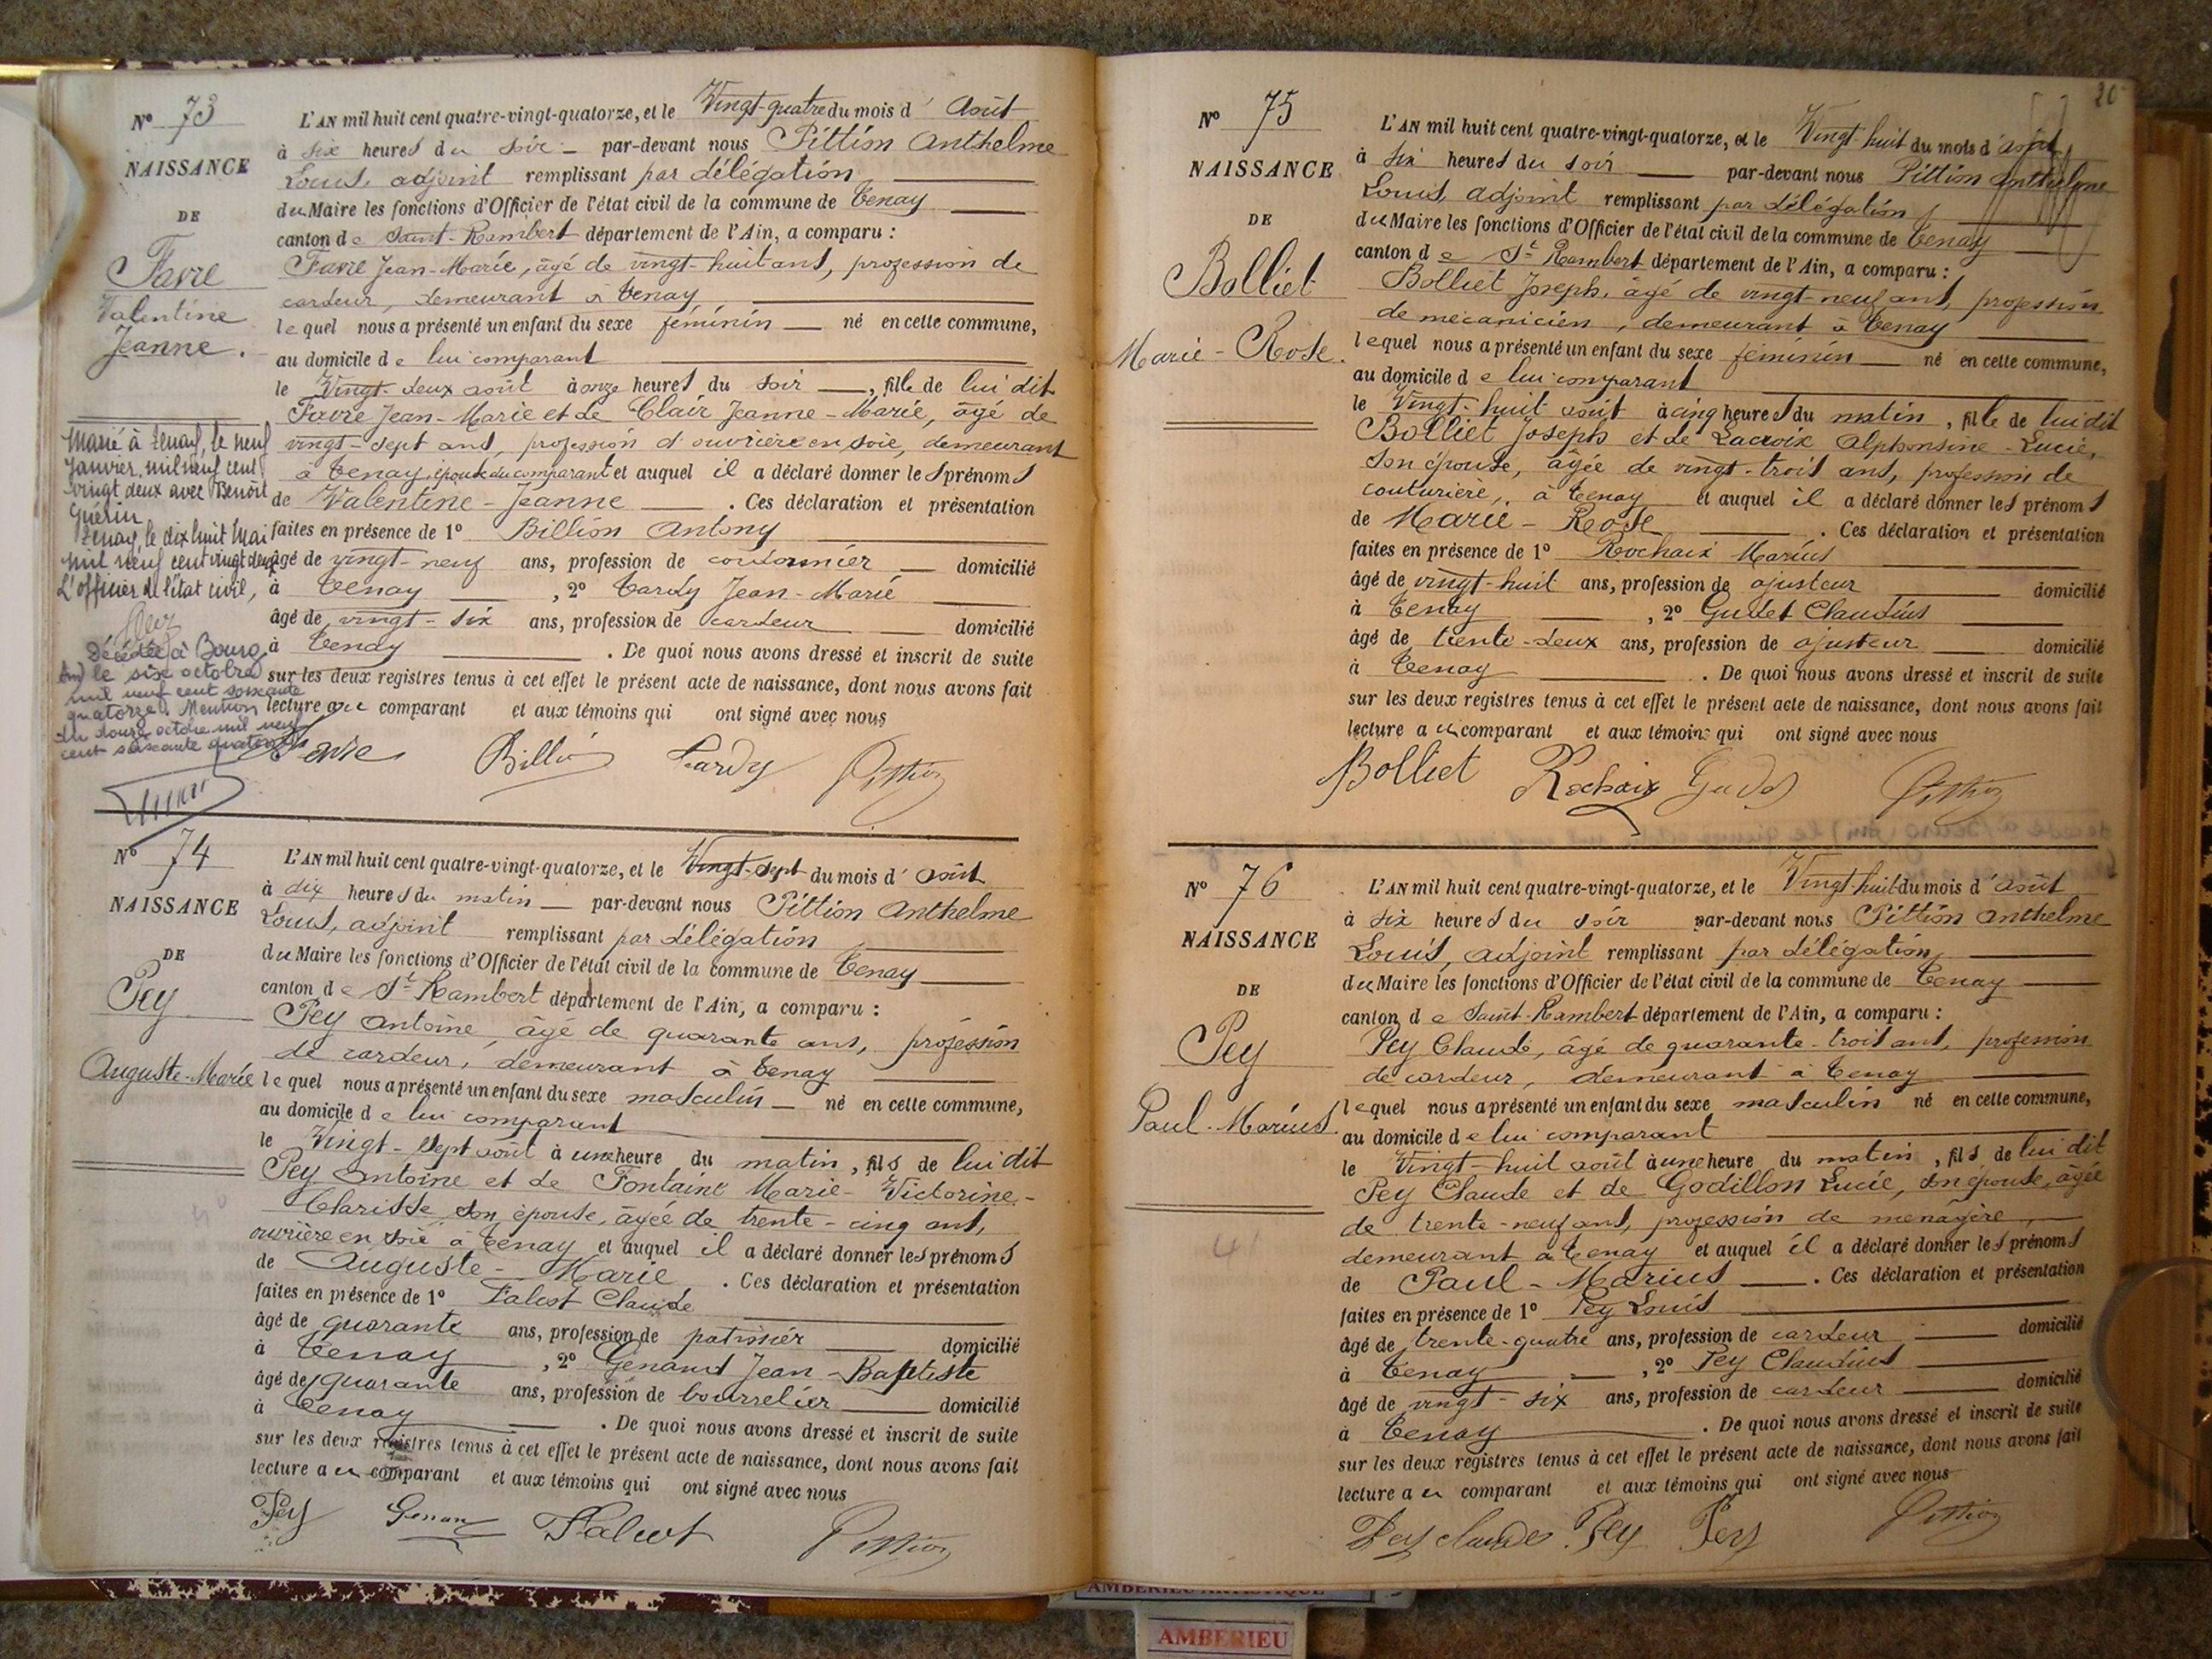 Nº 73
NAISSANCE
DE
Favre
Valentine
Jeanne.
Marié à Tenay, le neuf
Janvier, mil neuf cent
vingt deux avec Benoît
Guérin
Tenay, le dix huit Mai
mil neuf cent vingt deux
L'officier de l'état civil,
Décédée à Bourg
(Ain) le six octobre
mil neuf cent soixante
quatorze. Mention
du douze octobre mil neuf
cent soixante quatorze
L'AN mil huit cent quatre-vingt-quatorze, et le Vingt-quatre du mois d' Août
à six heures du soir — par-devant nous Pittion Anthelme
Louis, adjoint remplissant par délégation
du Maire les fonctions d'Officier de l'état civil de la commune de Tenay
canton de Saint-Rambert département de l'Ain, a comparu :
Favre Jean-Marie, âgé de vingt-huit ans, profession de
cardeur, demeurant à Tenay,
lequel nous a présenté un enfant du sexe féminin — né en cette commune,
au domicile de lui comparant
le Vingt-deux août à onze heures du soir —, fille de lui dit
Favre Jean-Marie et de Clair Jeanne-Marie, âgé de
vingt-sept ans, profession d'ouvrière en soie, demeurant
à Tenay, épouse du comparant et auquel il a déclaré donner les prénoms
de Valentine-Jeanne — . Ces déclaration et présentation
faites en présence de 1º Billion Antony
âgé de vingt-neuf ans, profession de cordonnier — domicilié
à Tenay —, 2º Tardy Jean-Marie
âgé de vingt-six ans, profession de cardeur — domicilié
à Tenay — . De quoi nous avons dressé et inscrit de suite
sur les deux registres tenus à cet effet le présent acte de naissance, dont nous avons fait
lecture au comparant et aux témoins qui ont signé avec nous
Favre Billion Tardy Pittion
Nº 74
NAISSANCE
DE
Pey
Auguste-Marie
L'AN mil huit cent quatre-vingt-quatorze, et le Vingt-sept du mois d' août
à dix heures du matin — par-devant nous Pittion Anthelme
Louis, adjoint remplissant par délégation
du Maire les fonctions d'Officier de l'état civil de la commune de Tenay
canton de St Rambert département de l'Ain, a comparu :
Pey Antoine, âgé de quarante ans, profession
de cardeur, demeurant à Tenay
lequel nous a présenté un enfant du sexe masculin — né en cette commune,
au domicile de lui comparant
le Vingt-sept août à une heure du matin, fils de lui dit
Pey Antoine et de Fontaine Marie-Victorine-
Clarisse son épouse, âgée de trente-cinq ans,
ouvrière en soie à Tenay et auquel il a déclaré donner les prénoms
de Auguste-Marie . Ces déclaration et présentation
faites en présence de 1º Falcot Claude
âgé de quarante ans, profession de patissier — domicilié
à Tenay —, 2º Genaud Jean-Baptiste
âgé de quarante ans, profession de bourrelier — domicilié
à Tenay — . De quoi nous avons dressé et inscrit de suite
sur les deux registres tenus à cet effet le présent acte de naissance, dont nous avons fait
lecture au comparant et aux témoins qui ont signé avec nous
Pey Genaud Falcot Pittion
20
Nº 75
NAISSANCE
DE
Bolliet
Marie-Rose.
L'AN mil huit cent quatre-vingt-quatorze, et le Vingt-huit du mois d'août
à six heures du soir — par-devant nous Pittion Anthelme
Louis, adjoint remplissant par délégation
du Maire les fonctions d'Officier de l'état civil de la commune de Tenay
canton de St Rambert département de l'Ain, a comparu :
Bolliet Joseph, âgé de vingt-neuf ans, profession
de mécanicien, demeurant à Tenay
lequel nous a présenté un enfant du sexe féminin — né en cette commune,
au domicile de lui comparant
le Vingt-huit août à cinq heures du matin, fille de lui dit
Bolliet Joseph et de Lacroix Alphonsine-Lucie,
son épouse, âgée de vingt-trois ans, profession de
couturière, à Tenay et auquel il a déclaré donner les prénoms
de Marie-Rose — . Ces déclaration et présentation
faites en présence de 1º Rochaix Marius
âgé de vingt-huit ans, profession de ajusteur — domicilié
à Tenay —, 2º Gudet Claudius
âgé de trente-deux ans, profession de ajusteur — domicilié
à Tenay — . De quoi nous avons dressé et inscrit de suite
sur les deux registres tenus à cet effet le présent acte de naissance, dont nous avons fait
lecture au comparant et aux témoins qui ont signé avec nous
Bolliet Rochaix Gudet Pittion
Nº 76
NAISSANCE
DE
Pey
Paul-Marius.
L'AN mil huit cent quatre-vingt-quatorze, et le Vingt-huit du mois d'août
à six heures du soir par-devant nous Pittion Anthelme
Louis, adjoint remplissant par délégation
du Maire les fonctions d'Officier de l'état civil de la commune de Tenay
canton de Saint-Rambert département de l'Ain, a comparu :
Pey Claude, âgé de quarante-trois ans, profession
de cardeur, demeurant à Tenay
lequel nous a présenté un enfant du sexe masculin né en cette commune,
au domicile de lui comparant
le Vingt-huit août à une heure du matin, fils de lui dit
Pey Claude et de Godillon Lucie, son épouse, âgée
de trente-neuf ans, profession de ménagère,
demeurant à Tenay et auquel il a déclaré donner les prénoms
de Paul-Marius — . Ces déclaration et présentation
faites en présence de 1º Pey Louis
âgé de trente-quatre ans, profession de cardeur — domicilié
à Tenay —, 2º Pey Claudius
âgé de vingt-six ans, profession de cardeur — domicilié
à Tenay — . De quoi nous avons dressé et inscrit de suite
sur les deux registres tenus à cet effet le présent acte de naissance, dont nous avons fait
lecture au comparant et aux témoins qui ont signé avec nous
Pey claude Pey Pey Pittion
AMBERIEU ARTISTIQUE
AMBERIEU